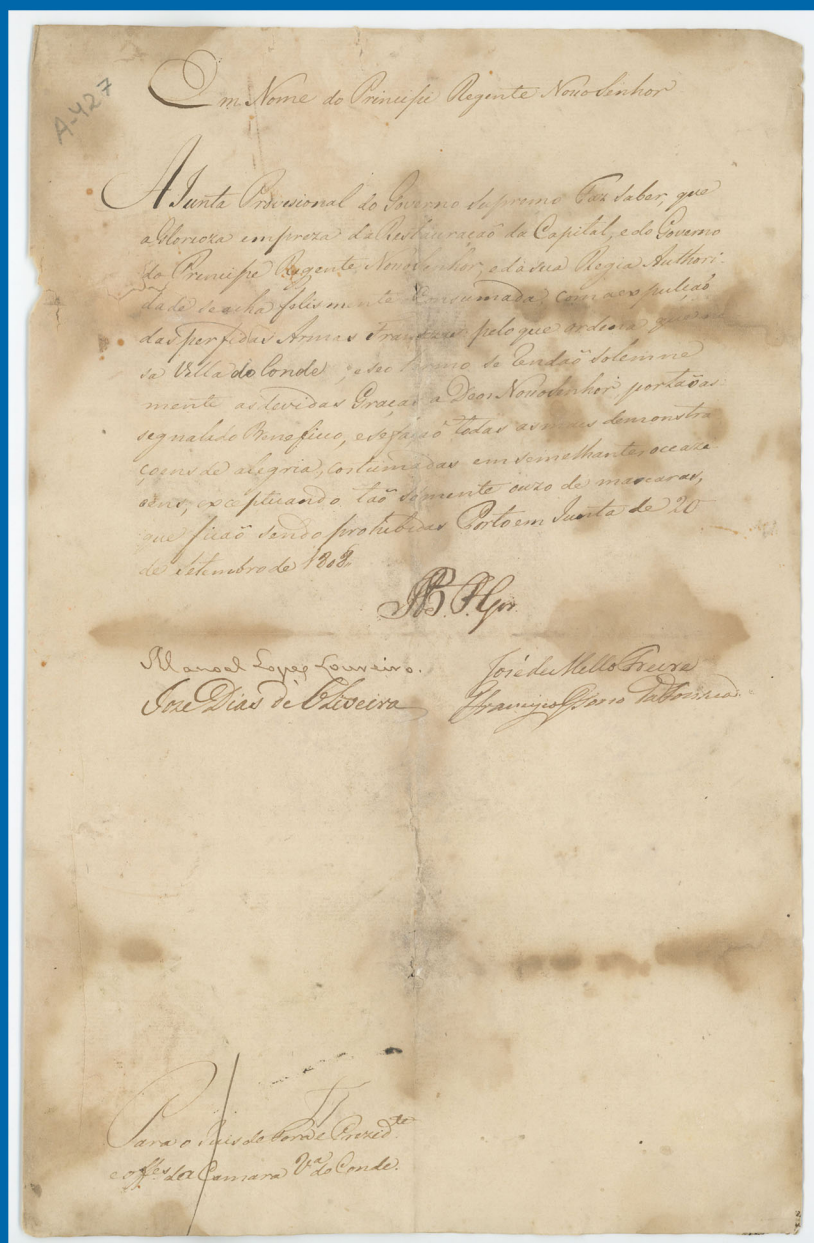 A-427
Em Nome do Principe Regente Nosso Senhor
A Junta Provisional do Governo Supremo Faz saber, que
a Glorioza empreza da Restauraçaõ da Capital, e do Governo
do Principe Regente, Nosso Senhor, e da sua Regia Authori-
dade se acha felismente Consumada, com a expulçaõ
das perfidas Armas Francezas pelo que ordena que
sa Villa do Conde, e seo termo se Rendaõ solemne
mente as devidas Graças a Deos Nosso Senhor, por taõ as-
segnalado Beneficio, e se façaõ todas as mais demonstra
çoens de alegria, costumadas em semelhantes occazi-
oens, exceptuando taõ sómente o uzo de mascaras,
que ficaõ sendo prohibidas Porto em Junta de 20
de Setembro de 1808
B. P. Gor.
Manoel Lopes Loureiro.
José de Mello Freire
Joze Dias de Oliveira
Para o Juis de Fora e Prezid.te
e off.es da Camara V.a do Conde.